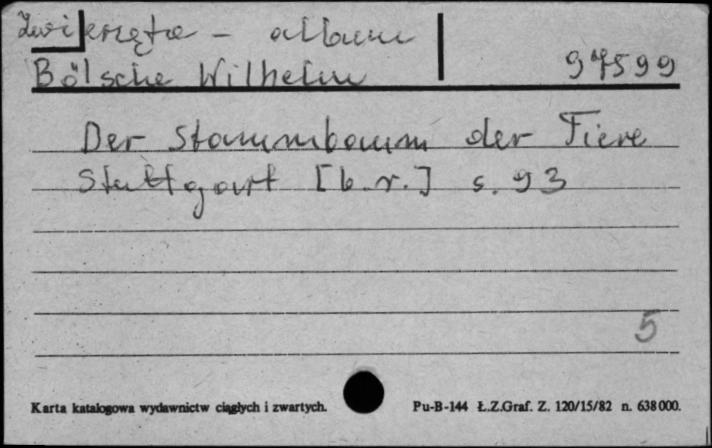 Zwierzęta - album
Bölsche Wilhelm 97599
Der Stammbaum der Tiere
Stuttgart [b.r.] s. 93
5
Karta katalogowa wydawnictw ciągłych i zwartych. Pu-B-144 Ł.Z.Graf. Z. 120/15/82 n. 638000.